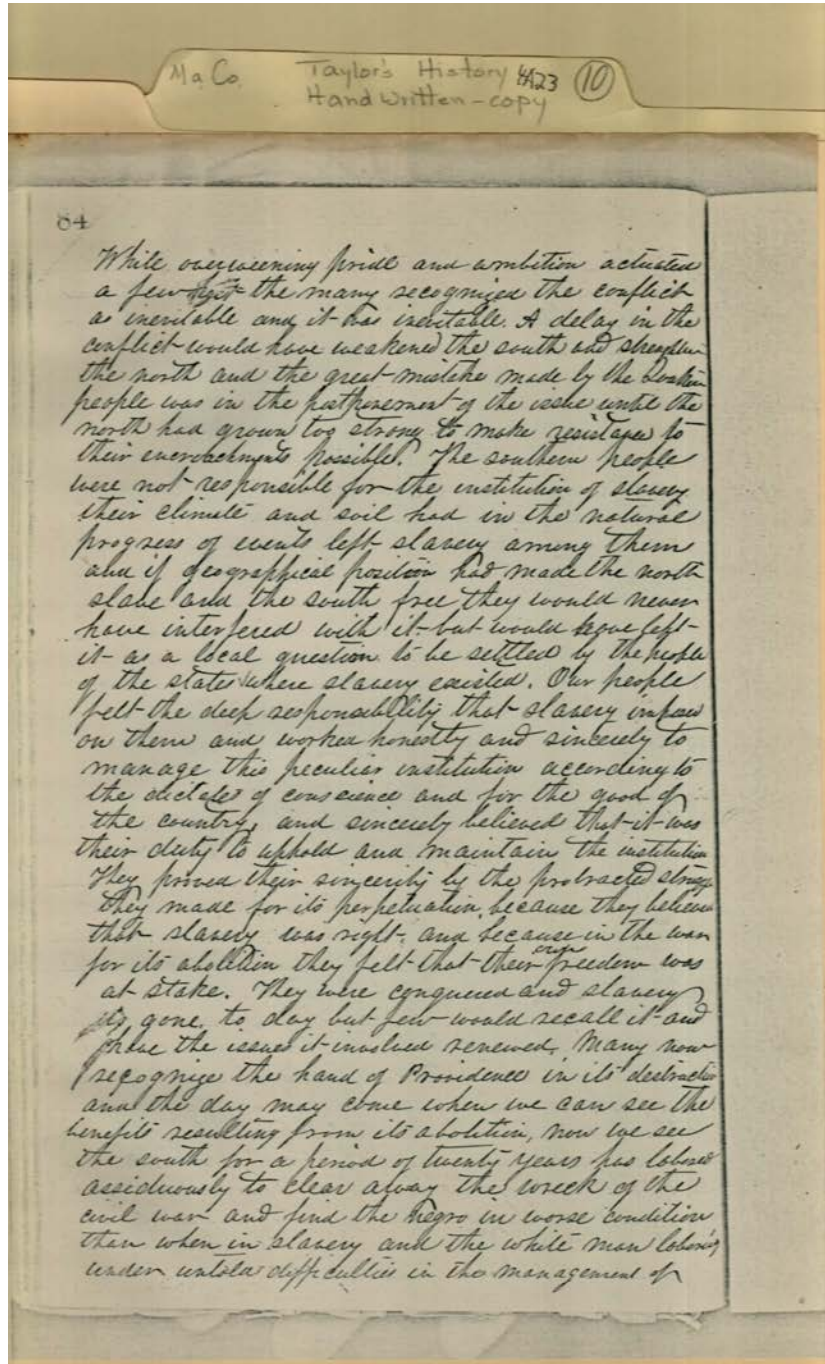 Ma. Co. Taylor's History 4A23 (10)
Hand Written - copy
84
While overweening pride and ambition actuated
a few the many recognized the conflict
as inevitable and it was inevitable. A delay in the
conflict would have weakened the south and strengthen
the north and the great mistake made by the
people was in the postponement of the issue until the
north had grown too strong to make resistance to
their encroachments possible. The southern people
were not responsible for the institution of slavery
their climate and soil had in the natural
progress of events left slavery among them
and if geographical position had made the north
slave and the south free they would never
have interfered with it but would have left
it as a local question to be settled by the people
of the states where slavery existed. Our people
felt the deep responsibility that slavery
on them and worked honestly and sincerely to
manage this peculiar institution according to
the dictates of conscience and for the good of
the country, and sincerely believed that it was
their duty to uphold and maintain the institution
They proved their sincerity by the protracted
they made for its perpetuation, because they believe
that slavery was right, and because in the war
for its abolition they felt that their own freedom was
at stake. They were conquered and slavery
is gone, to day but few would recall it and
have the issues it involved renewed. Many now
recognize the hand of Providence in its destruction
and the day may come when we can see the
benefits resulting from its abolition, now we see
the south for a period of twenty years has labored
assiduously to clear away the wreck of the
civil war and find the negro in worse condition
than when in slavery and the white man laboring
under untold difficulties in the management of